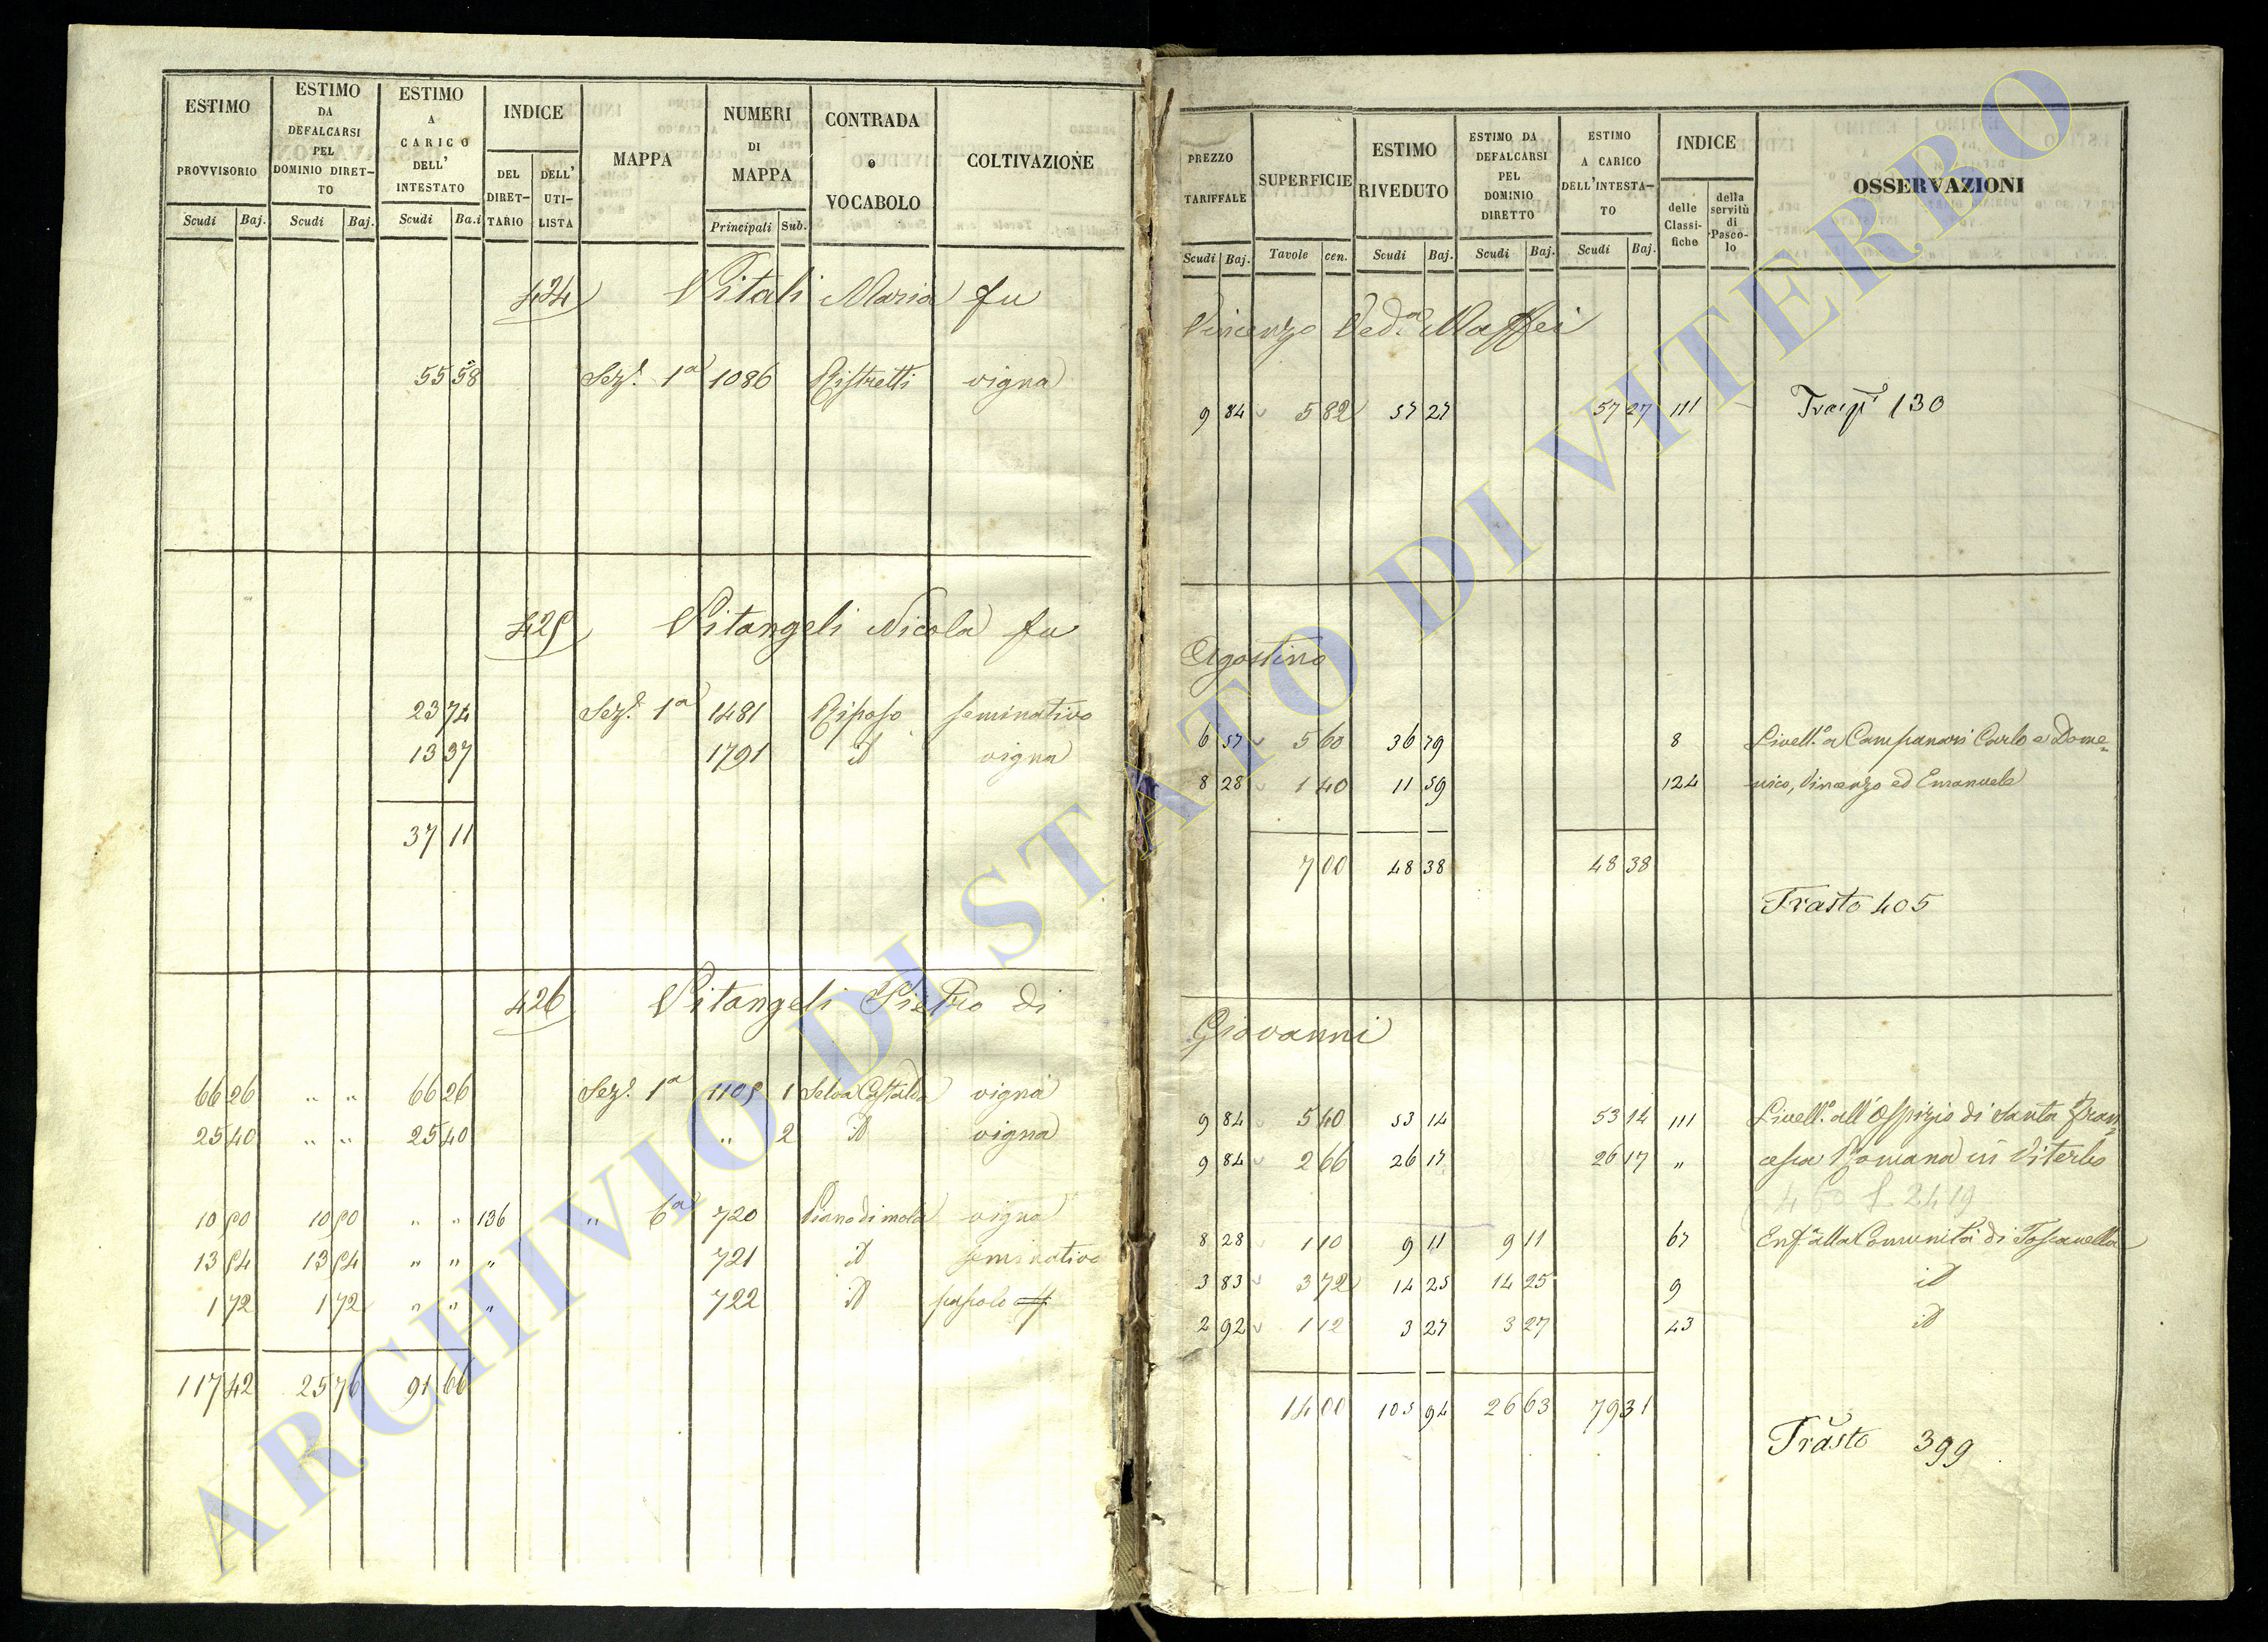 ESTIMO PROVVISORIO Scudi Baj.
ESTIMO DA DEFALCARSI PEL DOMINIO DIRET-TO Scudi Baj.
ESTIMO A CARICO DELL' INTESTATO Scudi Ba.i
INDICE DEL DIRET-TARIO DELL' UTI-LISTA
MAPPA
NUMERI DI MAPPA Principali Sub.
CONTRADA o VOCABOLO
COLTIVAZIONE
424 Vitali Maria fu
55 58 Sez.e 1a 1086 Ristretti vigna
425 Vitangeli Nicola fu
23 74 Sez.e 1a 1481 Riposo seminativo
13 37 1791 id vigna
37 11
426 Vitangeli Pietro di
66 26 " " 66 26 Sez.e 1a 1105 1 Selva Castalda vigna
25 40 " " 25 40 " 2 id vigna
10 50 10 50 " " 136 " 6a 720 Piano di mola vigna
13 54 13 54 " " " 721 id seminativo
1 72 1 72 " " " 722 id pascolo
117 42 25 76 91 66
PREZZO TARIFFALE Scudi Baj.
SUPERFICIE Tavole cen.
ESTIMO RIVEDUTO Scudi Baj.
ESTIMO DA DEFALCARSI PEL DOMINIO DIRETTO Scudi Baj.
ESTIMO A CARICO DELL'INTESTA-TO Scudi Baj.
INDICE delle Classi-fiche della servitù di Pasco-lo
OSSERVAZIONI
Vincenzo Ved.a Maffei
9 84 5 82 57 27 57 27 111 Trasp.to 130
Agostino
6 57 5 60 36 79 8 Livell.o a Campanari Carlo e Dome=
8 28 1 40 11 59 124 nico, Vincenzo ed Emanuele
7 00 48 38 48 38
Trasto 405
Giovanni
9 84 5 40 53 14 53 14 111 Livell.o all'Ospizio di Santa Fran=
9 84 2 66 26 17 26 17 " cesca Romana in Viterbo
8 28 1 10 9 11 9 11 67 Enf.a alla Comunità di Toscanella
3 83 3 72 14 25 14 25 9 id
2 92 1 12 3 27 3 27 43 id
14 00 105 94 26 63 79 31
Trasto 399
ARCHIVIO DI STATO DI VITERBO